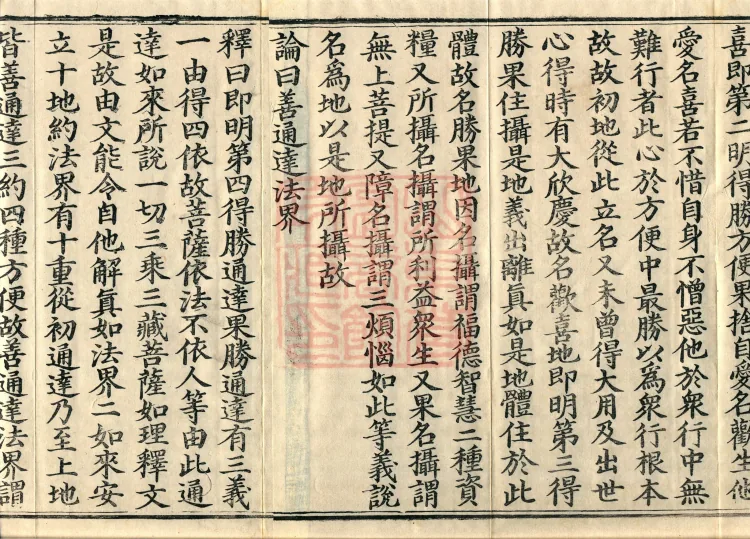 喜即第二明得勝方便果捨自愛名歡生他
愛名喜若不惜自身不憎惡他於衆行中無
難行者此心於方便中最勝以爲衆行根本
故故初地從此立名又未曾得大用及出世
心得時有大欣慶故名歡喜地即明第三得
勝果住攝是地義出離眞如是地體住於此
體故名勝果地因名攝謂福德智慧二種資
糧又所攝名攝謂所利益衆生又果名攝謂
無上菩提又障名攝謂三煩惱如此等義說
名爲地以是地所攝故
論曰善通達法界
釋曰即明第四得勝通達果勝通達有三義
一由得四依故菩薩依法不依人等由此通
達如來所說一切三乘三藏菩薩如理釋文
是故由文能令自他解眞如法界二如來安
立十地約法界有十重從初通達乃至上地
皆善通達三約四種方便故善通達法界謂